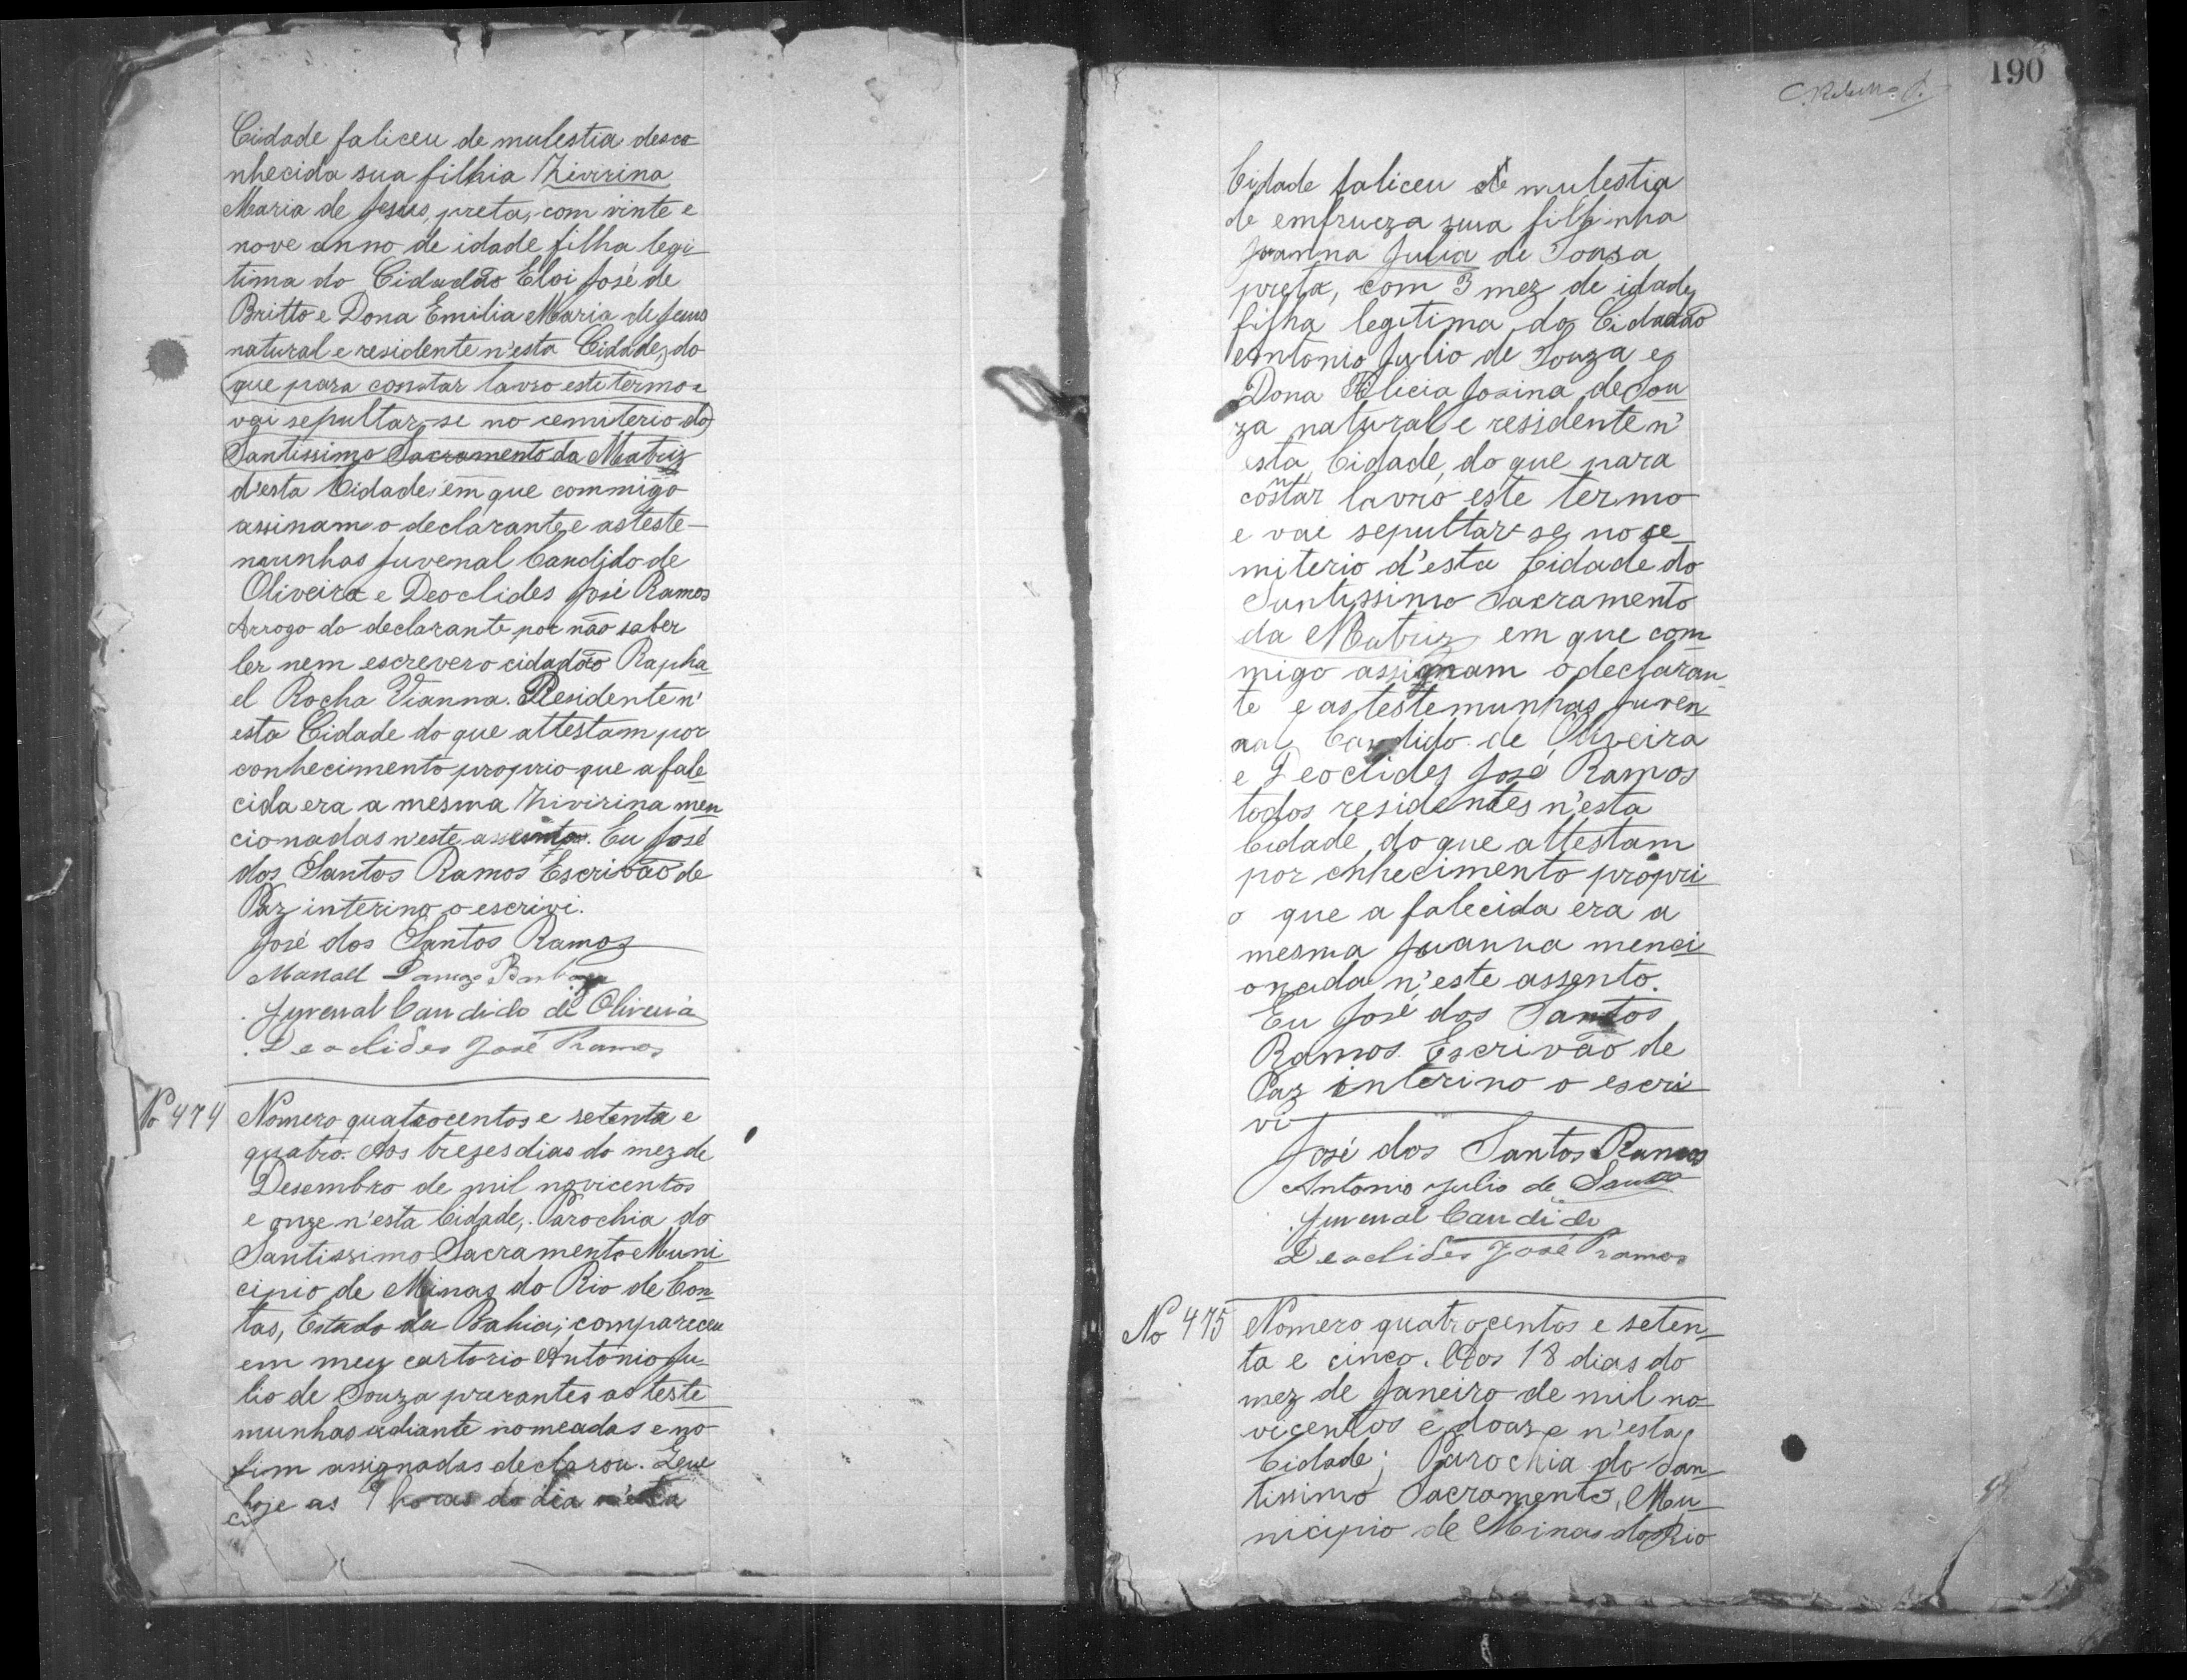 Cidade faliceu de mulestia desco-
nhecida sua filhia Zivirina
Maria de Jesus, preta, com vinte e
nove anno de idade filha legi-
tima do Cidadão Eloi José de
Britto e Dona Emilia Maria de Jesus
natural e residente n'esta Cidade, do
que para constar lavro este termo e
vai sepultar-se no cemiterio do
Santissimo Sacramento da Matriz
d'esta Cidade, em que commigo
assinam o declarante, e as teste-
naunhas Juvenal Candido de
Oliveira e Deoclides José Ramos
Arrogo do declarante por não saber
ler nem escrever o cidadão Rapha-
el Rocha Vianna. Residente n'
esta Cidade do que attestam por
conhecimento proprio que a fale-
cida era a mesma Zivirina men-
cionadas n'este assento. Eu José
dos Santos Ramos Escrivão de
Paz interino o escrivi.
José dos Santos Ramos
Manoel
Juvenal Candido de Oliveira
Deoclides José Ramos
No 474
Nomero quatrocentos e setenta e
quatro. Aos trezes dias do mez de
Desembro de mil novicentos
e onze n'esta Cidade, Parochia do
Santissimo Sacramento Muni-
cipio de Minas do Rio de Con-
tas, Estado da Bahia; compareceu
em meu cartorio Antonio Ju-
lio de Souza prerantes as teste-
munhas adiante nomeadas e no
fim assignadas declarou. Que
hoje as 9 horas do dia n'esta
ci
190
Cidade faliceu de mulestia
de emfrueza sua filhinha
Joanna Julia de Sousa
preta, com 3 mez de idade,
filha legitima do Cidadão
Antonio Julio de Souza e
Dona Felicia Josina de Sou-
za natural e residente n'
esta Cidade, do que para
constar lavro este termo
e vai sepultar-se no se-
miterio d'esta Cidade do
Santissimo Sacramento
da Matriz em que com-
migo assignam o declaran-
te e as testemunhas Juven-
nal Candido de Oliveira
e Deoclides José Ramos
todos residentes n'esta
Cidade, do que attestam
por cnhecimento propri-
o que a falecida era a
mesma Juanna menci-
onada n'este assento.
Eu José dos Santos
Ramos Escrivão de
Paz interino o escri-
vi
José dos Santos Ramos
Antonio Julio de Souza
Juvenal Candido
Deoclides José Ramos
No 475
Nomero quatrocentos e seten-
ta e cinco. Aos 18 dias do
mez de Janeiro de mil no-
vicentos e douze n'esta
Cidade; Parochia do San-
tissimo Sacramento, Mu-
nicipio de Minas do Rio